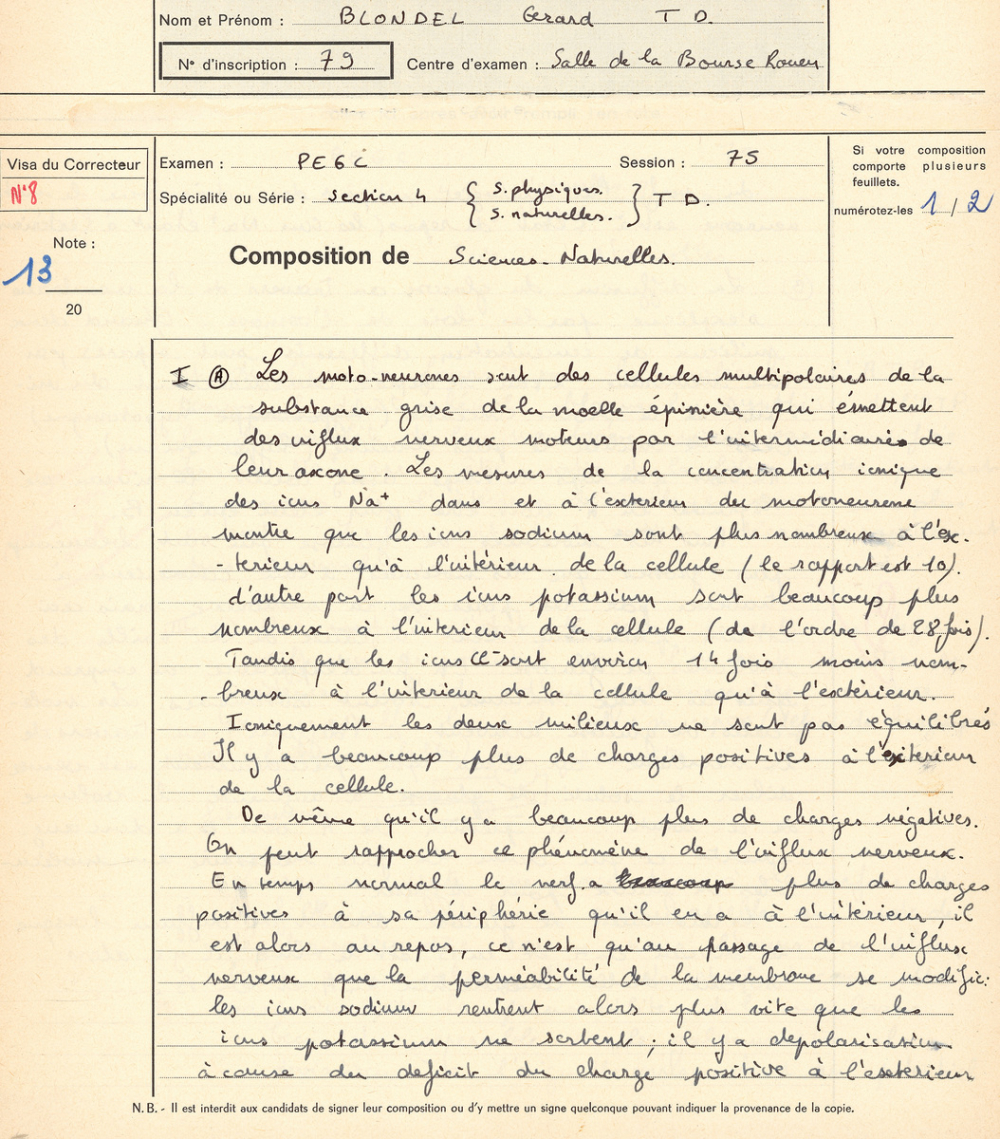 Nom et Prénom : BLONDEL Gerard T D.
N° d'inscription : 79 Centre d'examen : Salle de la Bourse Rouen
Visa du Correcteur
N°8
Note :
13
20
Examen : PEGC Session : 75
Spécialité ou Série : Section 4 { S. physiques. S. naturelles. } T D.
Composition de Sciences-Naturelles.
Si votre composition
comporte plusieurs
feuillets.
numérotez-les 1 / 2
I (A) Les moto-neurones sont des cellules multipolaires de la
substance grise de la moelle épinière qui émettent
des influx nerveux moteurs par l'intermédiaire de
leur axone. Les mesures de la concentration ionique
des ions Na+ dans et à l'exterieur du motoneurone
montre que les ions sodium sont plus nombreux à l'ex-
-terieur qu'à l'intérieur de la cellule (le rapport est 10).
d'autre part les ions potassium sont beaucoup plus
nombreux à l'interieur de la cellule (de l'ordre de 28 fois).
Tandis que les ions Cl- sont environ 14 fois moins nom-
-breux à l'interieur de la cellule qu'à l'extérieur.
Ioniquement les deux milieux ne sont pas équilibrés
Il y a beaucoup plus de charges positives à l'exterieur
de la cellule.
De même qu'il y a beaucoup plus de charges négatives.
On peut rapprocher ce phénomène de l'influx nerveux.
En temps normal le nerf a beaucoup plus de charges
positives à sa périphérie qu'il en a à l'intérieur, il
est alors au repos, ce n'est qu'au passage de l'influx
nerveux que la perméabilité de la membrane se modifie:
les ions sodium rentrent alors plus vite que les
ions potassium ne sortent ; il y a depolarisation
à cause du deficit du charge positive à l'exterieur
N. B. - Il est interdit aux candidats de signer leur composition ou d'y mettre un signe quelconque pouvant indiquer la provenance de la copie.